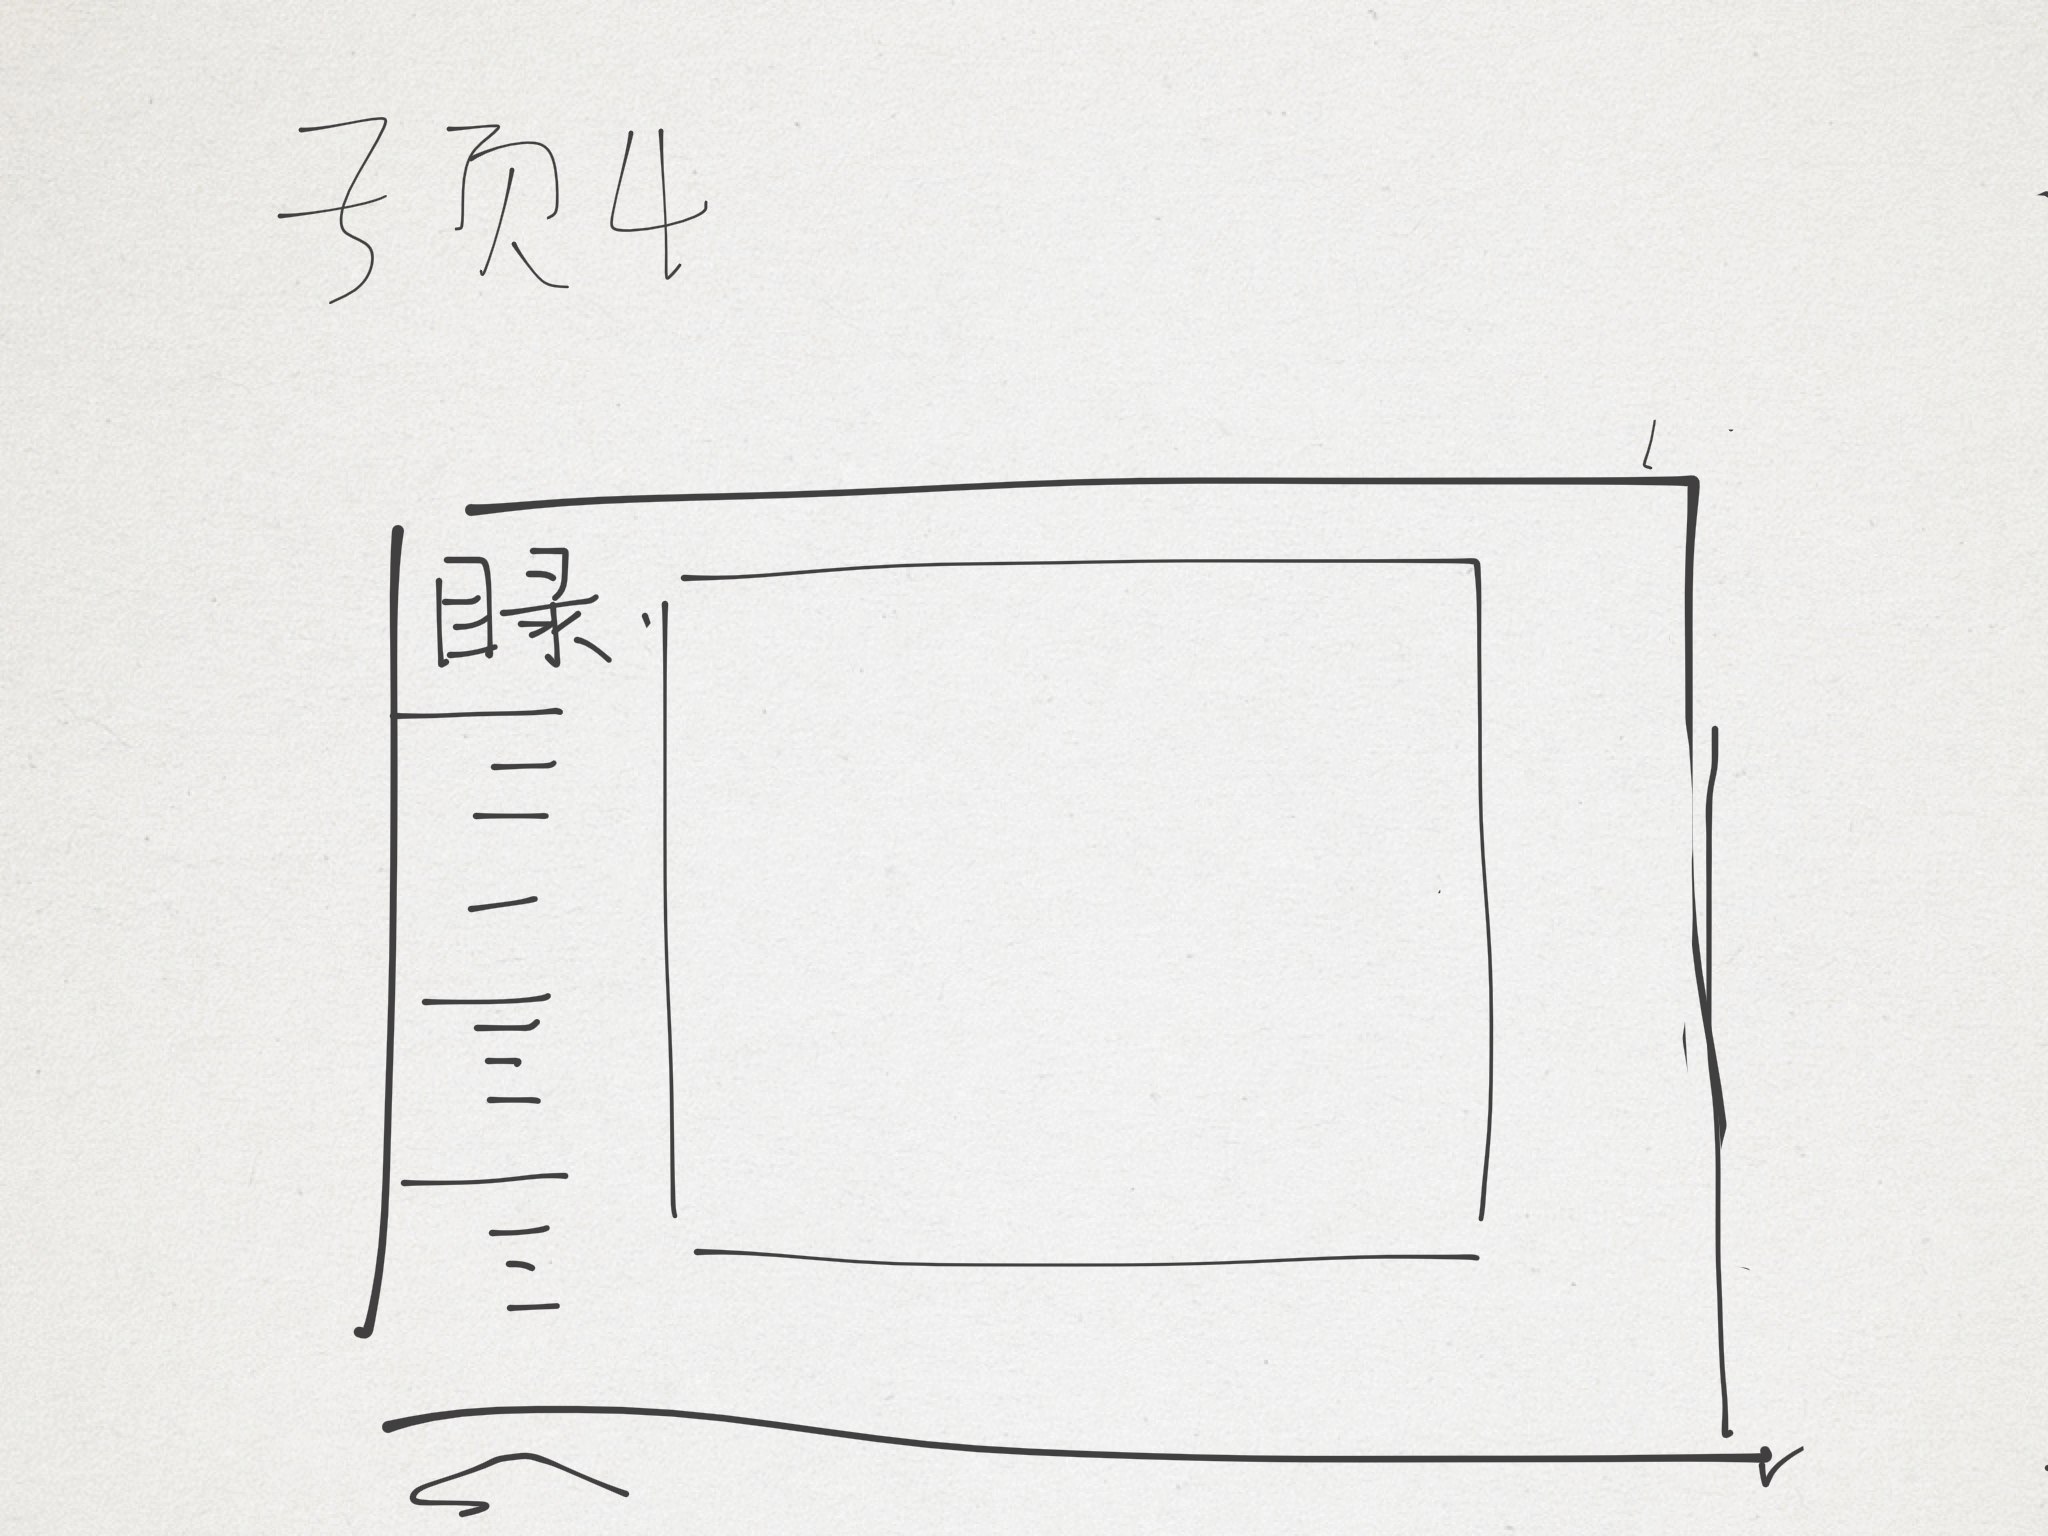 子页4
目录